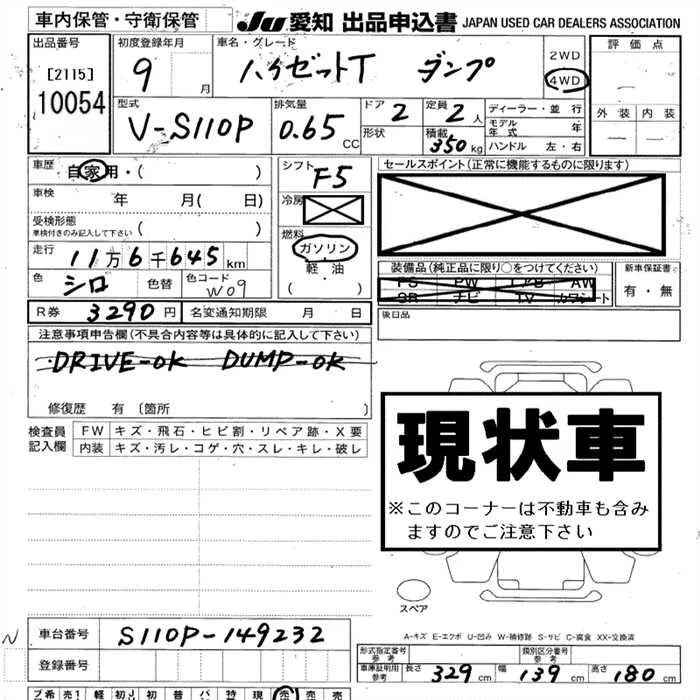 車内保管・守衛保管 JU 愛知 出品申込書 JAPAN USED CAR DEALERS ASSOCIATION
出品番号
[2115]
10054
初度登録年月
9 月
車名・グレード
ハイゼットT ダンプ
2WD
4WD
評価点
外装 内装
型式
V-S110P
排気量
0.65 CC
ドア 2
形状
定員 2 人
積載 350 kg
ディーラー・並行
モデル年式 年
ハンドル 左・右
車歴
自家用・( )
車検 年 月( 日)
受検形態
車検付きのみ記入して下さい ( )
走行 11万6千645 km
色 シロ 色替 色コード W09
R券 3290 円 名変通知期限 月 日
シフト
F5
冷房
燃料
ガソリン
軽油
( )
セールスポイント(正常に機能するものに限ります)
装備品(純正品に限り○をつけてください)
PS PW エアB AW
SR ナビ TV カワシート
新車保証書
有・無
後日品
注意事項申告欄(不具合内容等は具体的に記入して下さい)
DRIVE-OK DUMP-OK
修復歴 有 〔箇所 〕
検査員記入欄
FW キズ・飛石・ヒビ割・リペア跡・X要
内装 キズ・汚レ・コゲ・穴・スレ・キレ・破レ
現状車
※このコーナーは不動車も含み
ますのでご注意下さい
スペア
A-キズ E-エクボ U-凹み W-補修跡 S-サビ C-腐食 XX-交換済
N
車台番号 S110P-149232
登録番号
形式指定番号 参考
類別区分番号 参考
車庫証明用 参考 長さ 329 cm 幅 139 cm 高さ 180 cm